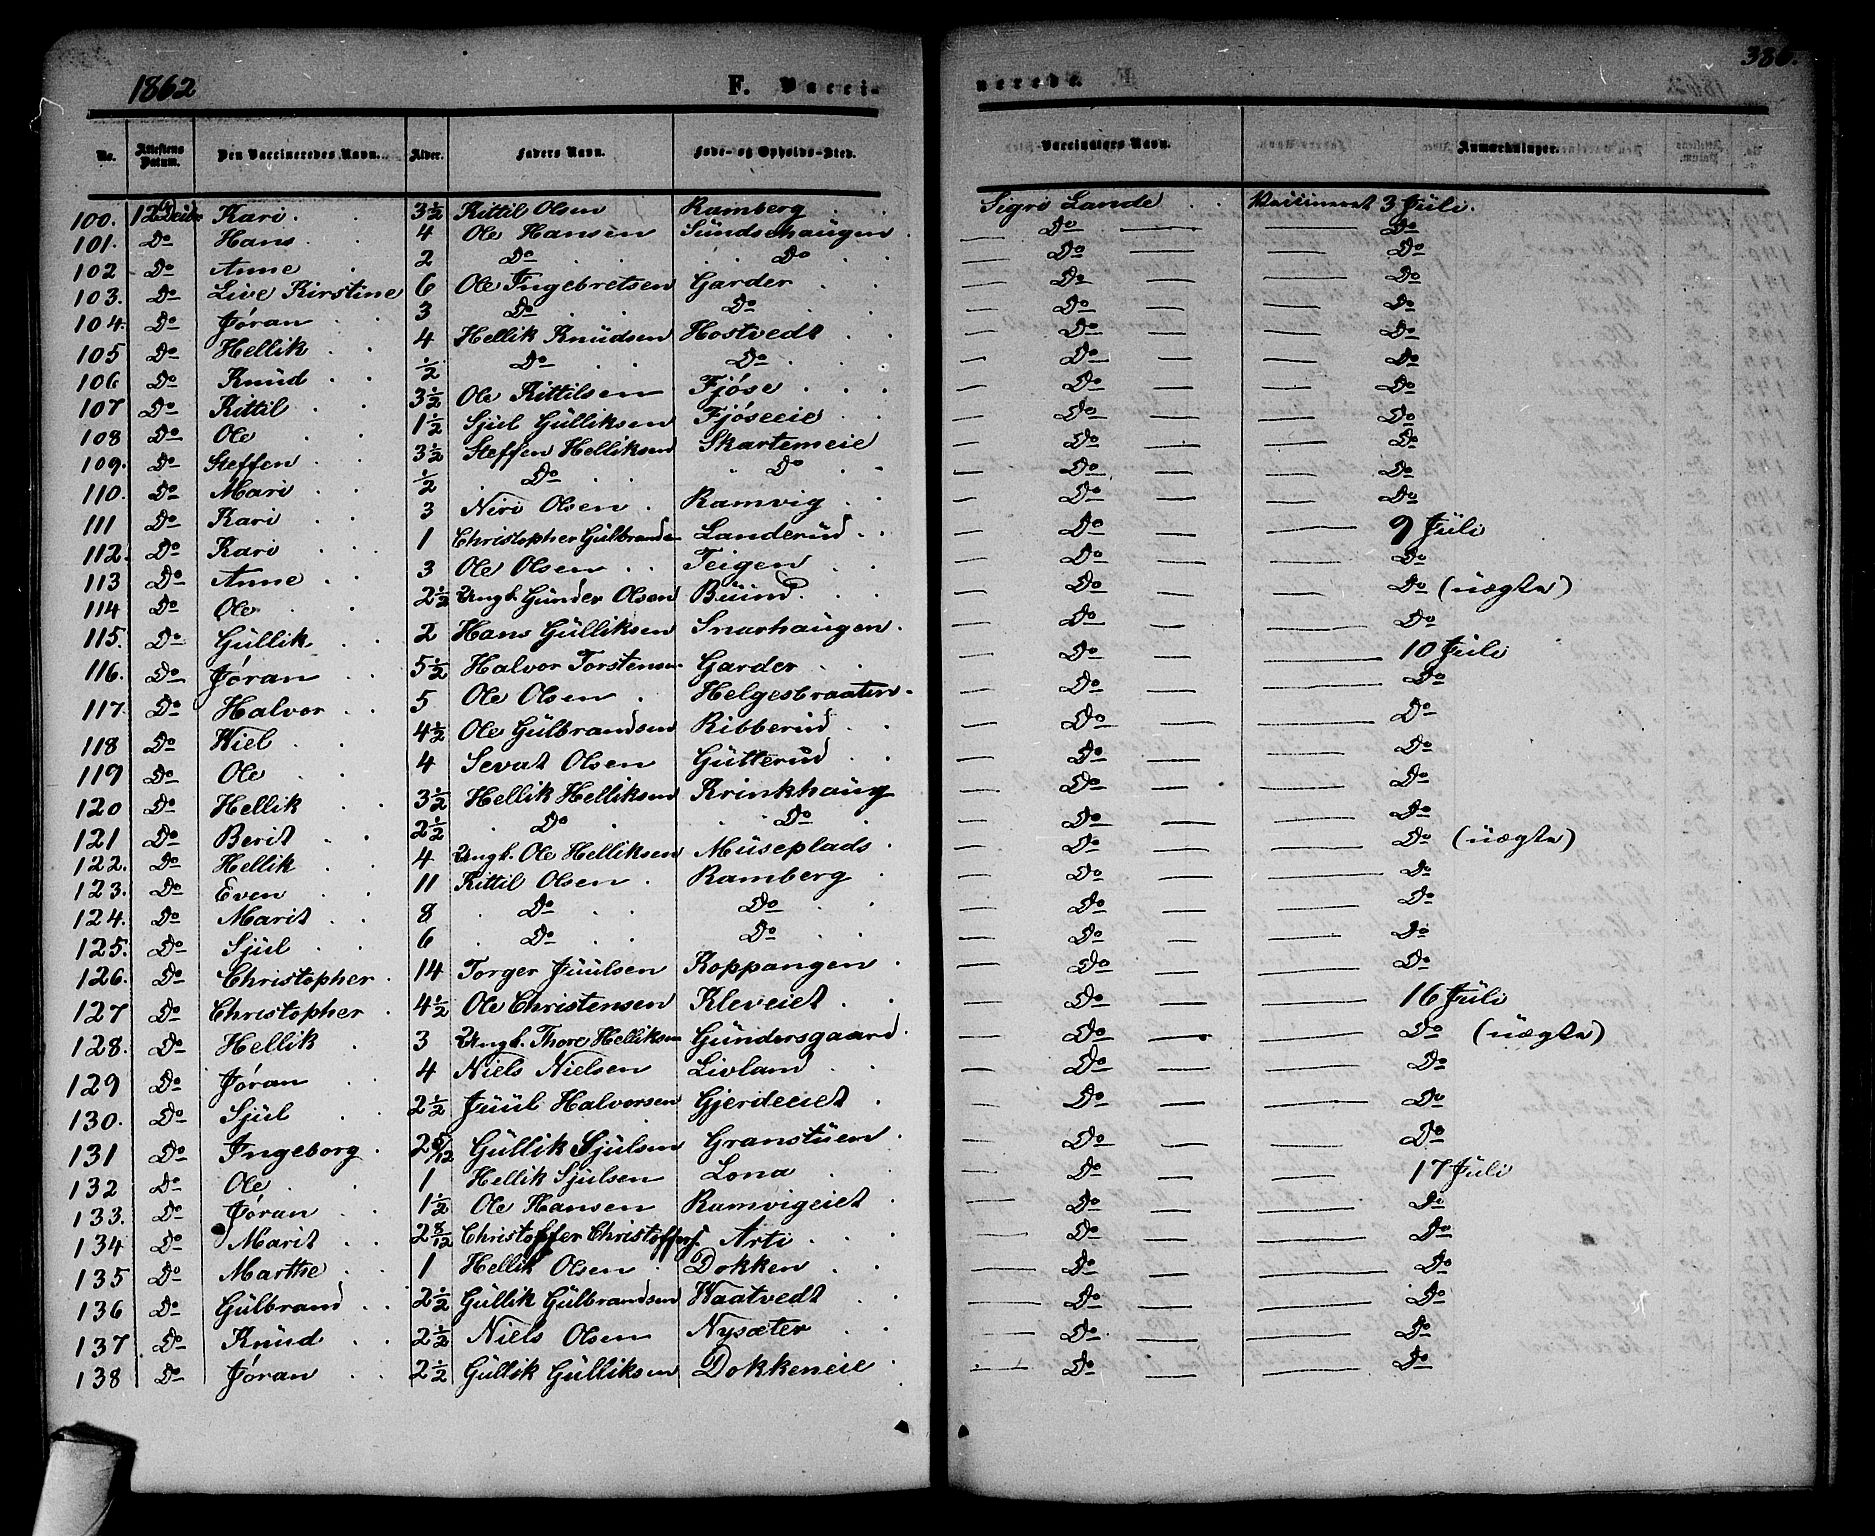 1862 F. Vacci- nerede 386.
No. Attestens Datum. Den Vaccineredes Navn. Alder. Faders Navn. Føde- og Opholds-Sted. Vaccinators Navn. Anmærkninger.
100. 12 Kari 3½ Kittil Olsen Ramberg Sigri Lande 3 Juli.
101. Do Hans 4 Ole Hansen Sundsehaugen Do Do
102 Do Anne 2 Do Do Do Do
103. Do Live Kirstine 6 Ole Ingebretsen Garder Do Do
104. Do Jøran 3 Do Do Do Do
105 Do Hellik 4 Hellik Knudsen Hostvedt Do Do
106 Do Knud ½ Do Do Do Do
107 Do Kittil 3½ Ole Kittilsen Fjøse Do Do
108 Do Ole 1½ Sjul Gulliksen Fjøseeie Do Do
109. Do Steffen 3½ Steffen Helliksen Skartemeie Do Do
110. Do Mari ½ Do Do Do Do
111 Do Kari 3 Niri Olsen Ramvig Do Do
112. Do Kari 1 Christopher Gulbrands Landerud Do 9 Juli
113 Do Anne 3 Ole Olsen Teigen Do Do
114 Do Ole 2½ Ungk. Gunder Olsen Buind Do Do (uægte)
115. Do Gullik 2 Hans Gulliksen Snarhaugen Do Do
116. Do Jøran 5½ Halvor Torstensen Garder Do 10 Juli
117. Do Halvor 5 Ole Olsen Helgesbraaten Do Do
118 Do Niel 4½ Ole Gulbrandsen Ribberud Do Do
119 Do Ole 4 Sevat Olsen Gutterud Do Do
120 Do Hellik 3½ Hellik Helliksen Krinkhaug Do Do
121 Do Berit 2½ Do Do Do Do
122. Do Hellik 4 Ungk. Ole Helliksen Museplads Do Do (uægte)
123. Do Even 11 Kittil Olsen Ramberg Do Do
124. Do Marit 8 Do Do Do Do
125. Do Sjul 6 Do Do Do Do
126. Do Christopher 14 Torger Juulsen Koppangen Do Do
127 Do Christopher 4½ Ole Christensen Kleveiet Do 16 Juli
128. Do Hellik 3 Ungk. Thore Helliksen Gundersgaard Do Do (uægte)
129 Do Jøran 4 Niels Nielsen Livland Do Do
130. Do Sjul 2½ Juul Halvorsen Gjerdeeiet Do Do
131 Do Ingeborg 2 5/12 Gullik Sjulsen Granstuen Do Do
132 Do Ole 1 Hellik Sjulsen Lona Do 17 Juli
133. Do Jøran 1½ Ole Hansen Ramvigeiet Do Do
134 Do Marit 2 8/12 Christoffer Christoffers. Arti Do Do
135 Do Marthe 1 Hellik Olsen Dokken Do Do
136 Do Gulbrand 2½ Gullik Gulbrandsen Waatvedt Do Do
137 Do Knud 2½ Niels Olsen Nysæter Do Do
138 Do Jøran 2½ Gullik Gulliksen Dokkeneie Do Do